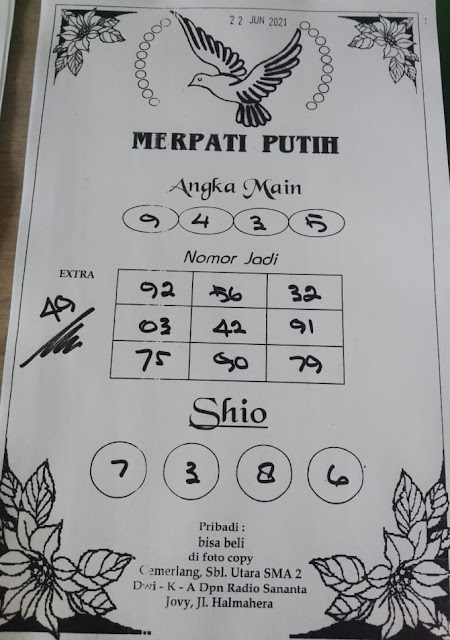 22 JUN 2021
MERPATI PUTIH
Angka Main
9 4 3 5
Nomor Jadi
EXTRA
49
92 56 32
03 42 91
75 90 79
Shio
7 3 8 6
Pribadi :
bisa beli
di foto copy
Cemerlang, Sbl. Utara SMA 2
Dwi - K - A Dpn Radio Sananta
Jovy, Jl. Halmahera